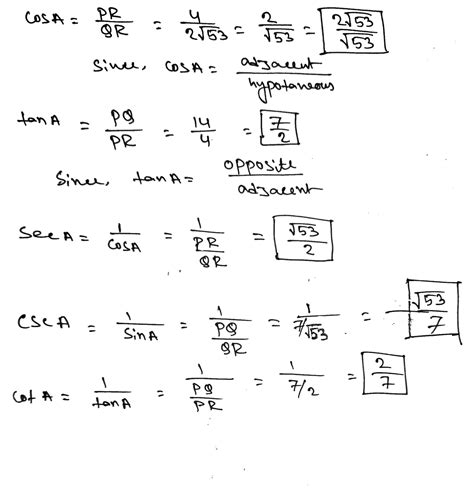 cosA = PR/QR = 4/2√53 = 2/√53 = 2√53/√53
Since, cosA = adjacent/hypotaneous
tanA = PQ/PR = 14/4 = 7/2
Since, tanA = opposite/adjacent
SecA = 1/CosA = 1/(PR/QR) = √53/2
CscA = 1/SinA = 1/(PQ/QR) = 1/(7/√53) = √53/7
Cot A = 1/tanA = 1/(PQ/PR) = 1/(7/2) = 2/7